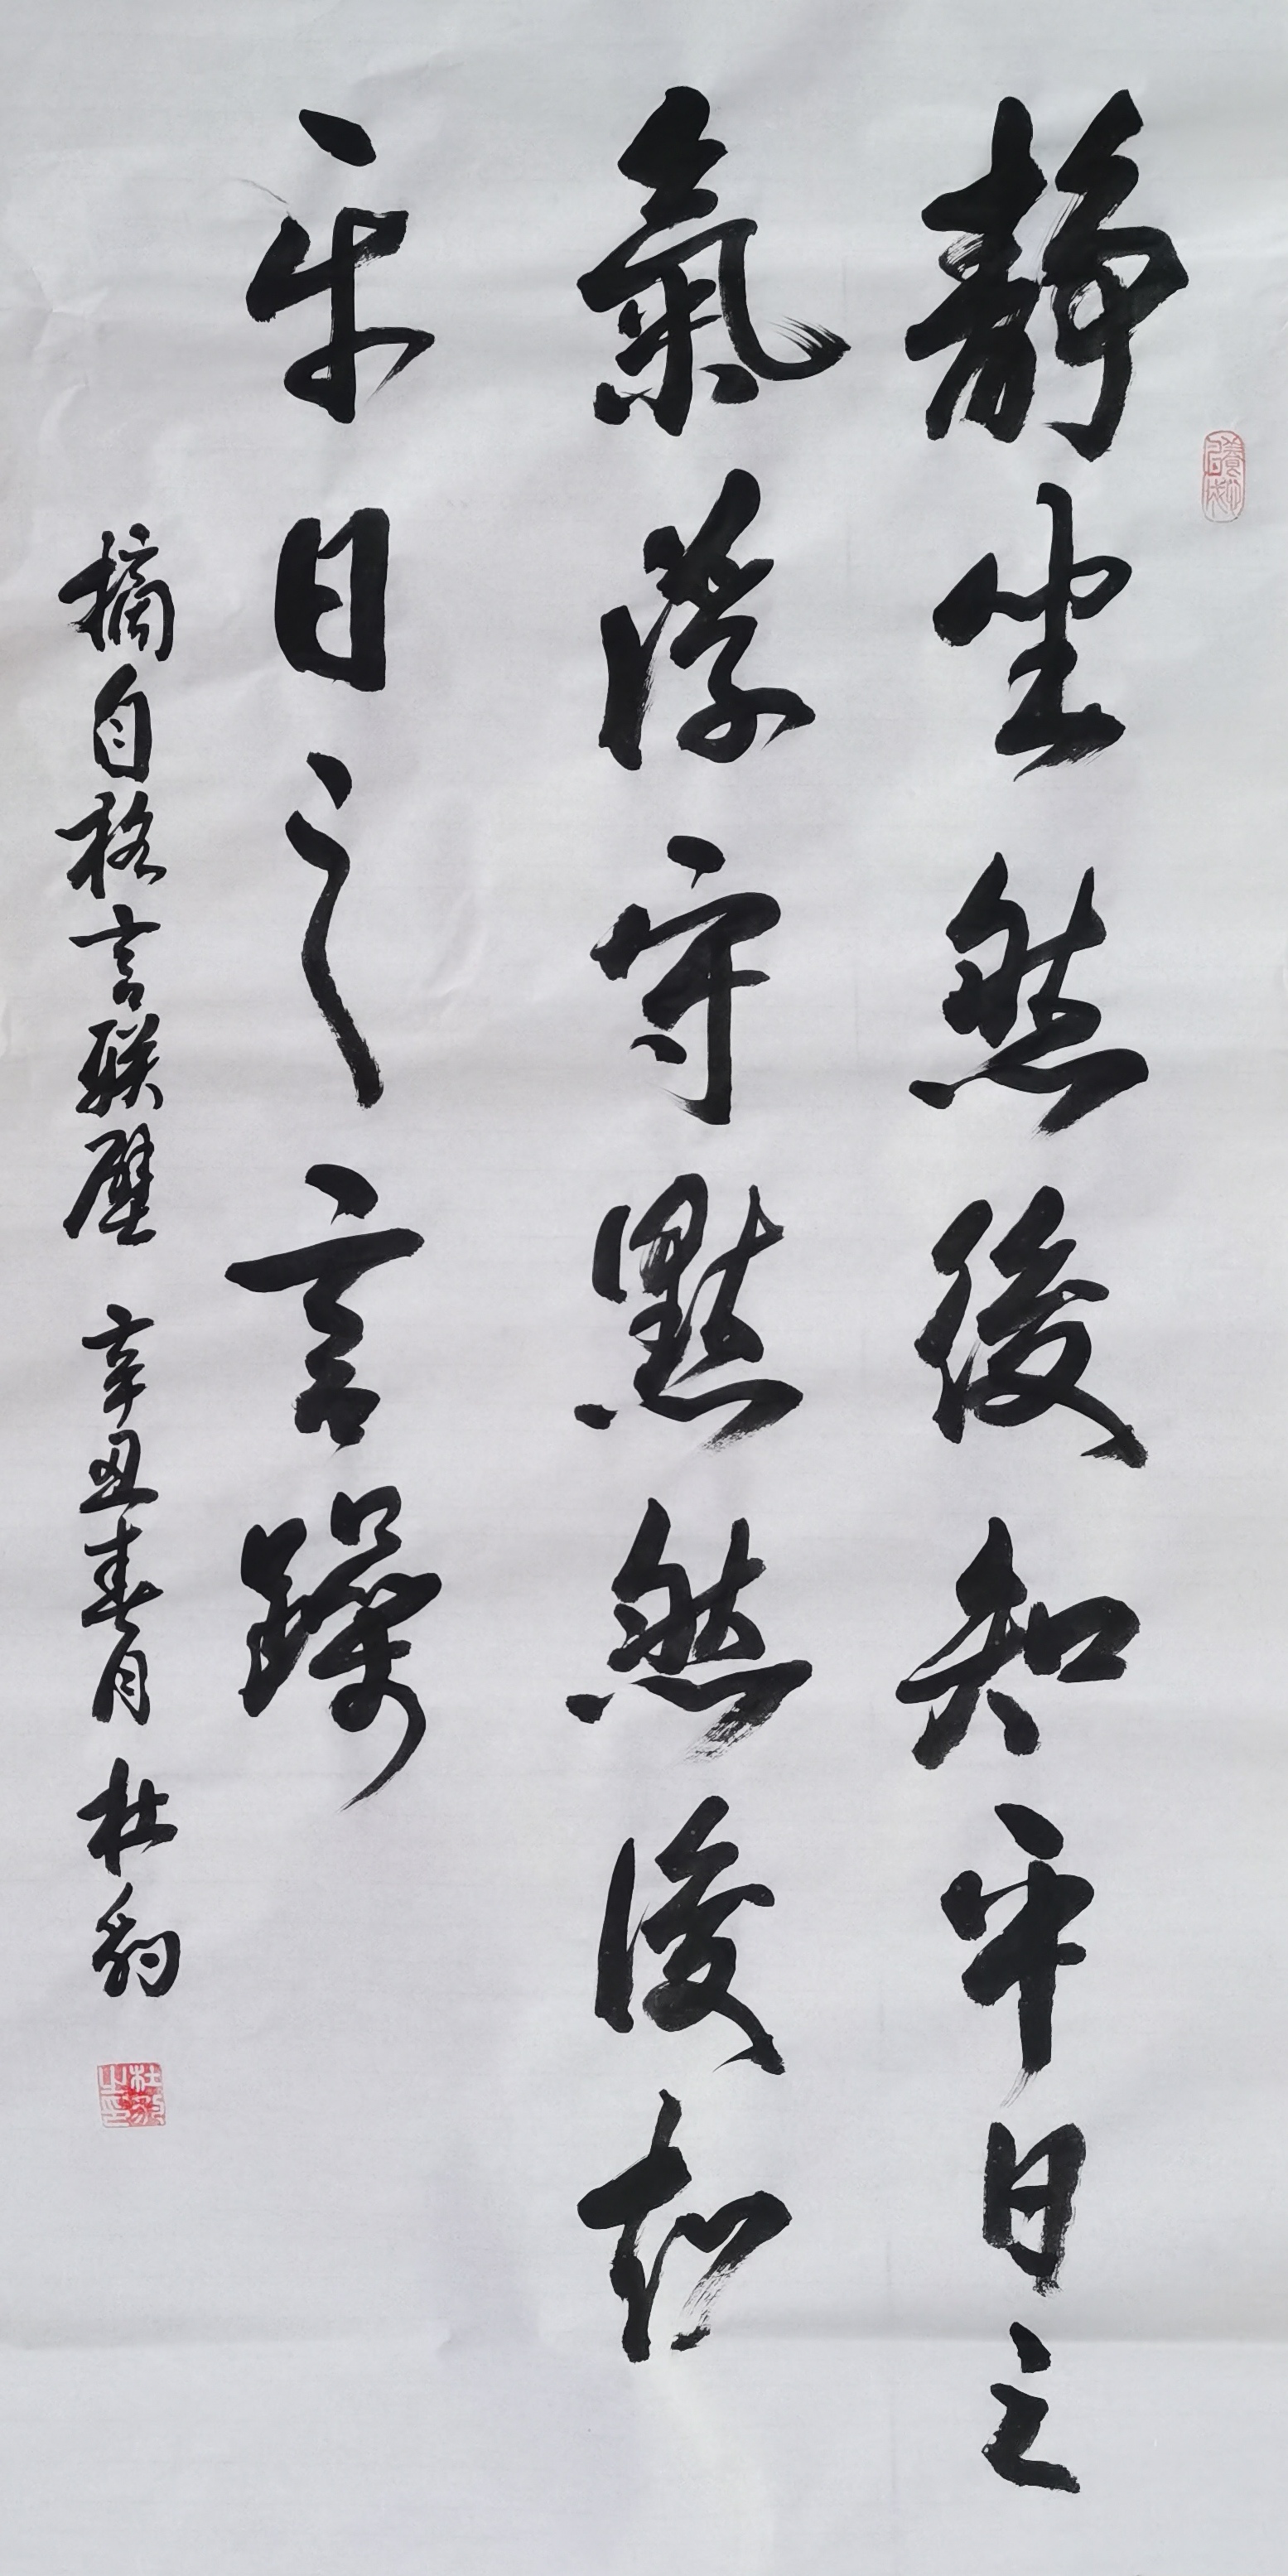 靜坐然後知平日之
氣浮守默然後知
平日之言躁
摘自格言联壁 辛丑春月 杜豹
杜豹之印